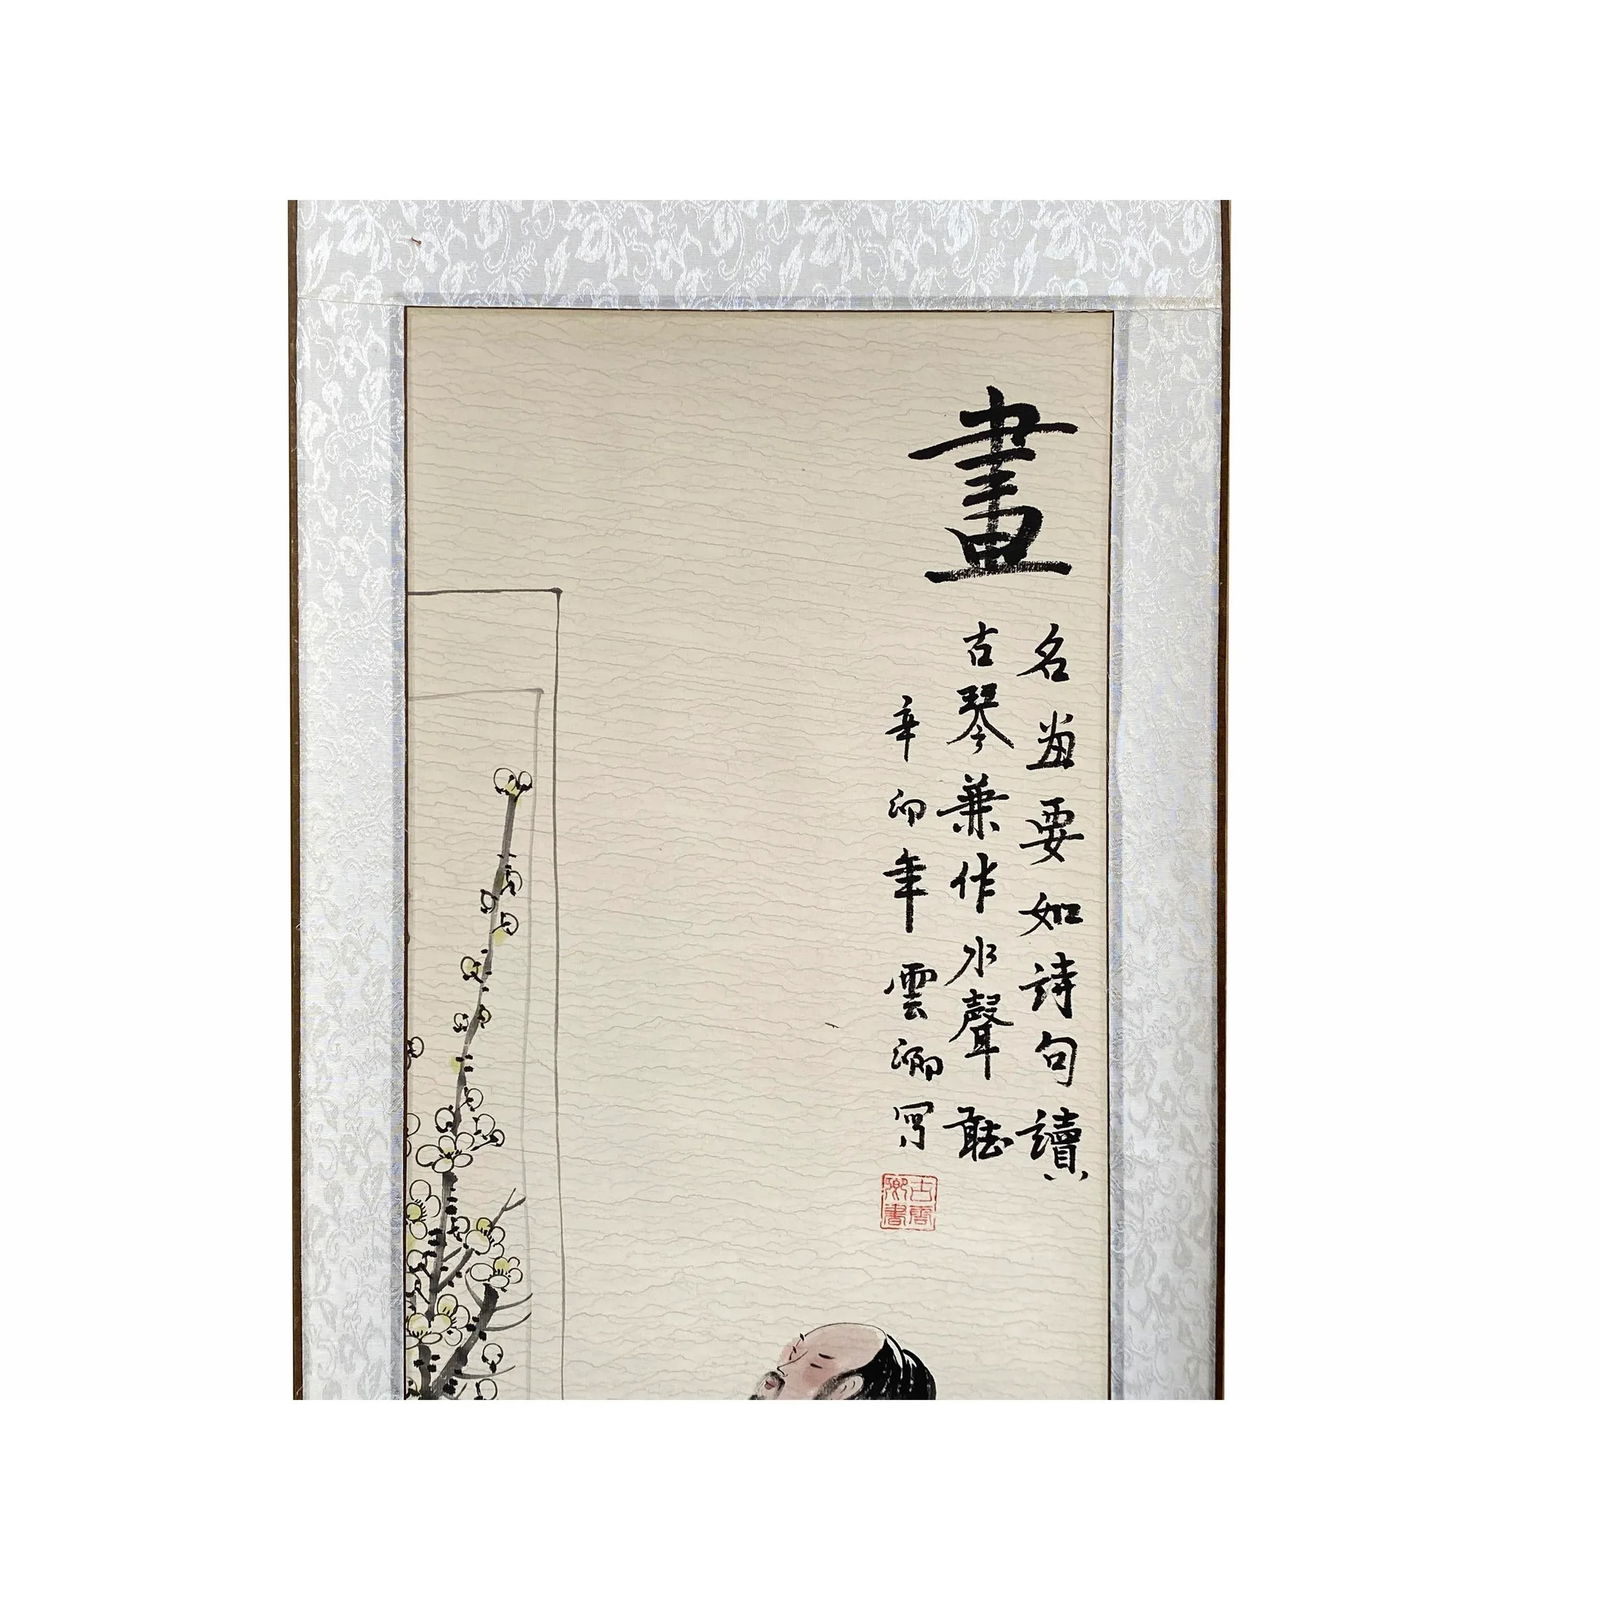 畫
名畫要如詩句讀
古琴兼作水聲聽
辛卯年雲湖寫